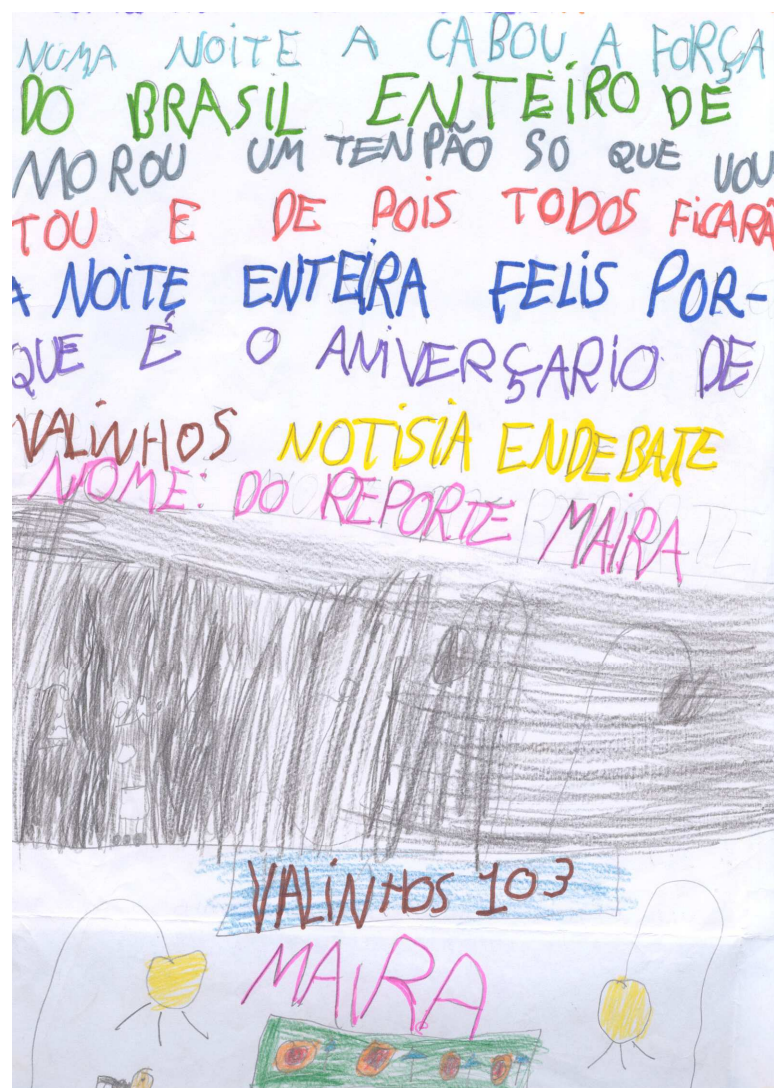 NUMA NOITE A CABOU A FORÇA
DO BRASIL ENTEIRO DE
MOROU UM TENPÃO SO QUE VOU
TOU E DE POIS TODOS FICARÃ
A NOITE ENTEIRA FELIS POR-
QUE É O ANIVERÇARIO DE
VALINHOS NOTISIA ENDEBATE
NOME: DO REPORTE MAIRA
VALINHOS 103
MAIRA